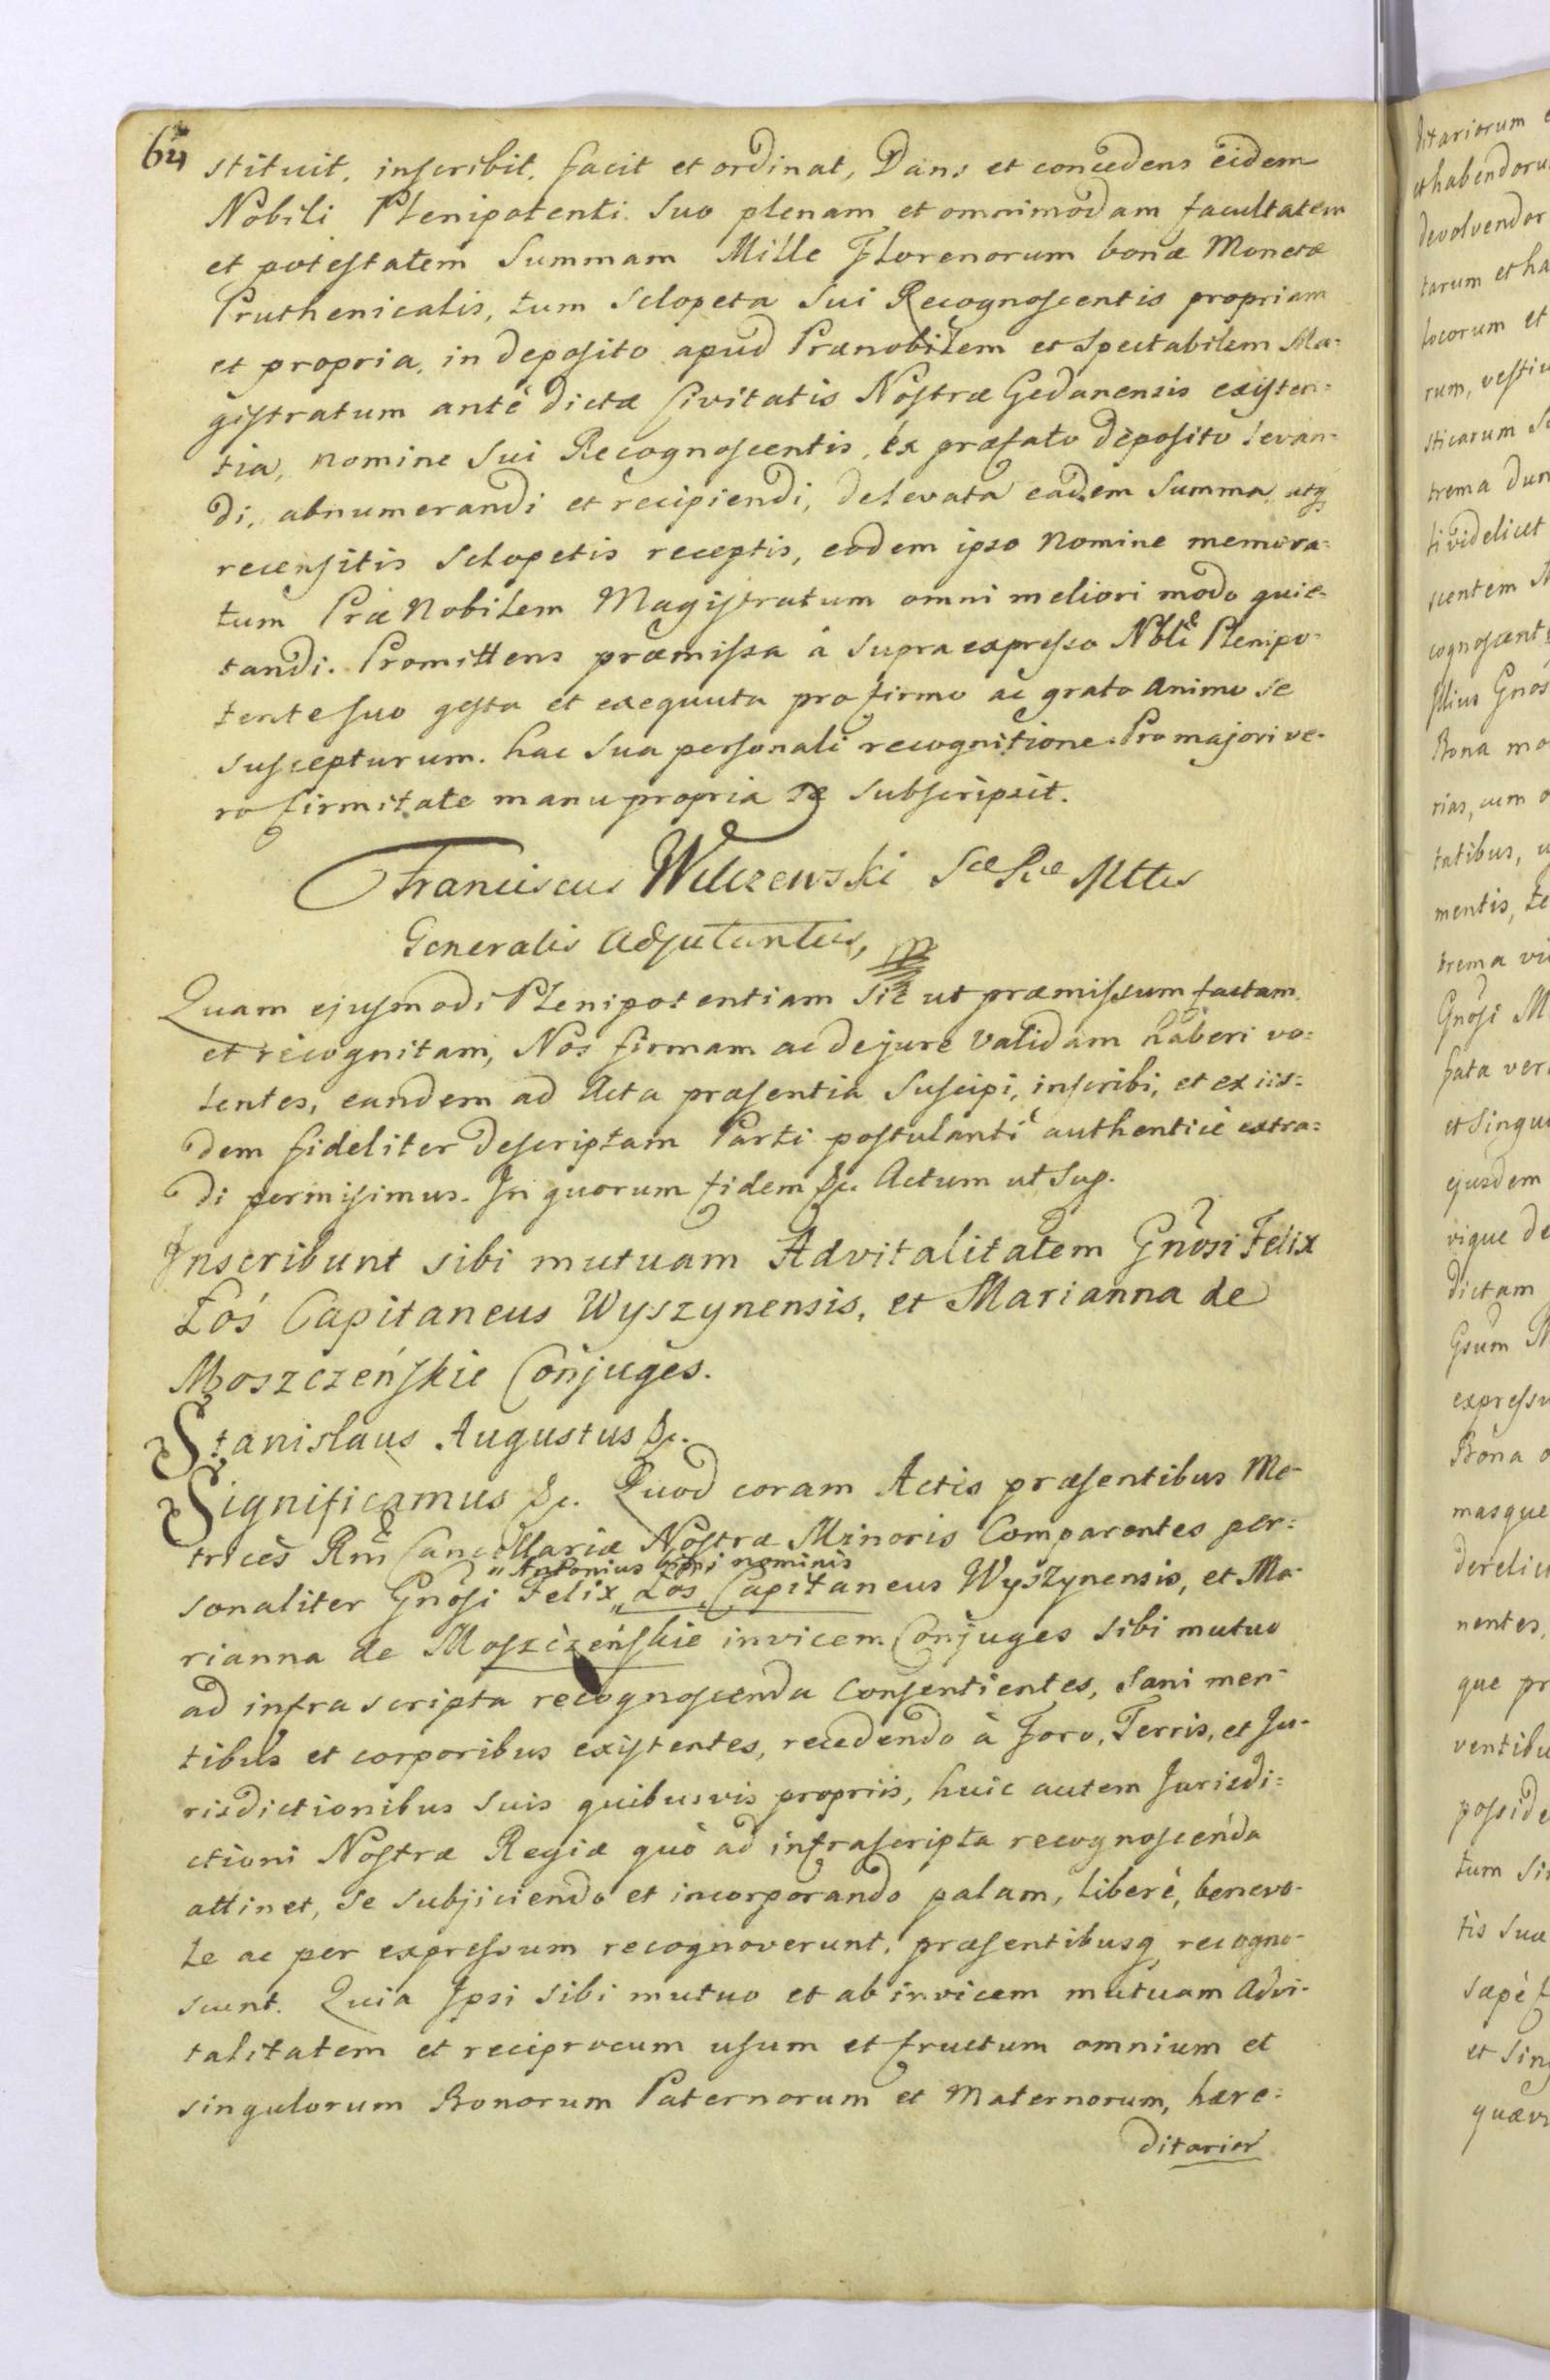 64
stituit, inscribit, facit et ordinat, Dans et concedens eidem
Nobili Plenipotenti suo plenam et omnimodam facultatem
et potestatem Summam Mille Florenorum bonæ Monetæ
Pruthenicalis, tum Sclopeta Sui Recognoscentis propriam
et propria, in deposito apud Prænobilem et Spectabilem Ma=
gistratum antè dictæ Civitatis Nostræ Gedanensis existen=
tia, nomine Sui Recognoscentis, ex præfato deposito levan=
di, abnumerandi et recipiendi, delevata eadem Summa atq
recensitis Sclopetis receptis, eodem ipso Nomine memora=
tum Præ Nobilem Magistratum omni meliori modo quie=
tandi. Promittens præmissa à supra expresso Nbli Plenipo=
tente suo gesta et exequuta pro firmo ac grato animo se
suscepturum. hac sua personali recognitione. Pro majori ve=
ro firmitate manu propria se subscripsit.
Franciscus Wilczewski Sæ Ræ Mttis
Generalis Adjutantus, mp
Quam ejusmodi Plenipotentiam sic ut præmissum factam
et recognitam, Nos firmam ac de jure validam haberi vo=
lentes, eandem ad Acta præsentia suscipi, inscribi, et ex iis=
dem fideliter descriptam Parti postulanti authenticè extra=
di permisimus. In quorum fidem &c. Actum ut Sup.
Inscribunt sibi mutuam Advitalitatem Gnosi Felix
Łoś Capitaneus Wyszynensis, et Marianna de
Moszczeńskie Conjuges.
Stanislaus Augustus &c.
Significamus &c. Quod coram Actis præsentibus Me-
trices Rni Cancellariæ Nostræ Minoris Comparentes per=
" Antonius bini nominis
sonaliter Gnosi Felix " Łoś, Capitaneus Wyszynensis, et Ma-
rianna de Moszczeńskie invicem Conjuges sibi mutuo
ad infra scripta recognoscenda consentientes, sani men-
tibus et corporibus existentes, recedendo à Foro, Terris, et Ju-
risdictionibus suis quibusvis propriis, huic autem Jurisdi=
ctioni Nostræ Regiæ quò ad infrascripta recognoscenda
attinet, se subjiciendo et incorporando palam, liberè, benevo-
le ac per expressum recognoverunt, præsentibusq recogno-
scunt. Quia Ipsi sibi mutuo et ab invicem mutuam Advi-
talitatem et reciprocum usum et fructum omnium et
singulorum Bonorum Paternorum et Maternorum, hære=
ditarior